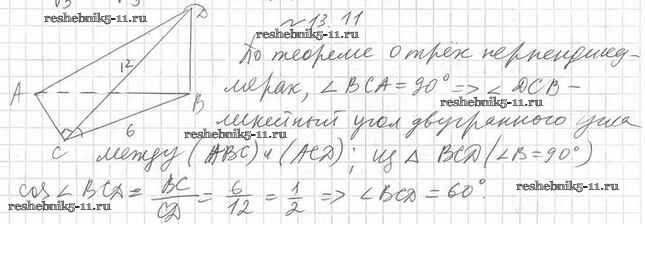 reshebnik5-11.ru
№ 13.11
D
reshebnik5-11.ru
12
По теореме о трёх перпендику-
A
B
лярах, ∠BCA = 90° => ∠DCB -
reshebnik5-11.ru
линейный угол двугранного угла
6
reshebnik5-11.ru
C
между (ABC) и (ACD); из △ BCD (∠B=90°)
cos ∠BCD = BC/CD = 6/12 = 1/2 => ∠BCD = 60°.
reshebnik5-11.ru
reshebnik5-11.ru